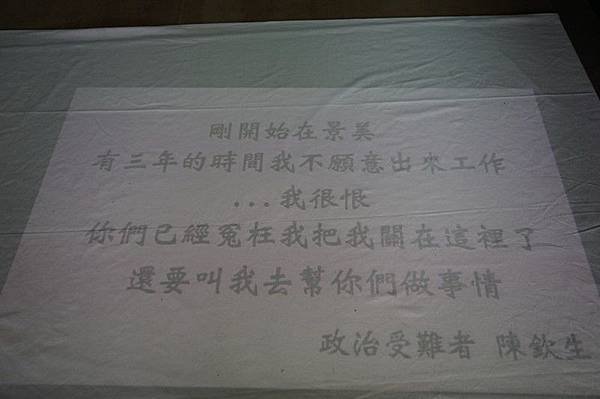 剛開始在景美
有三年的時間我不願意出來工作
...我很恨
你們已經冤枉我把我關在這裡了
還要叫我去幫你們做事情
政治受難者 陳欽生